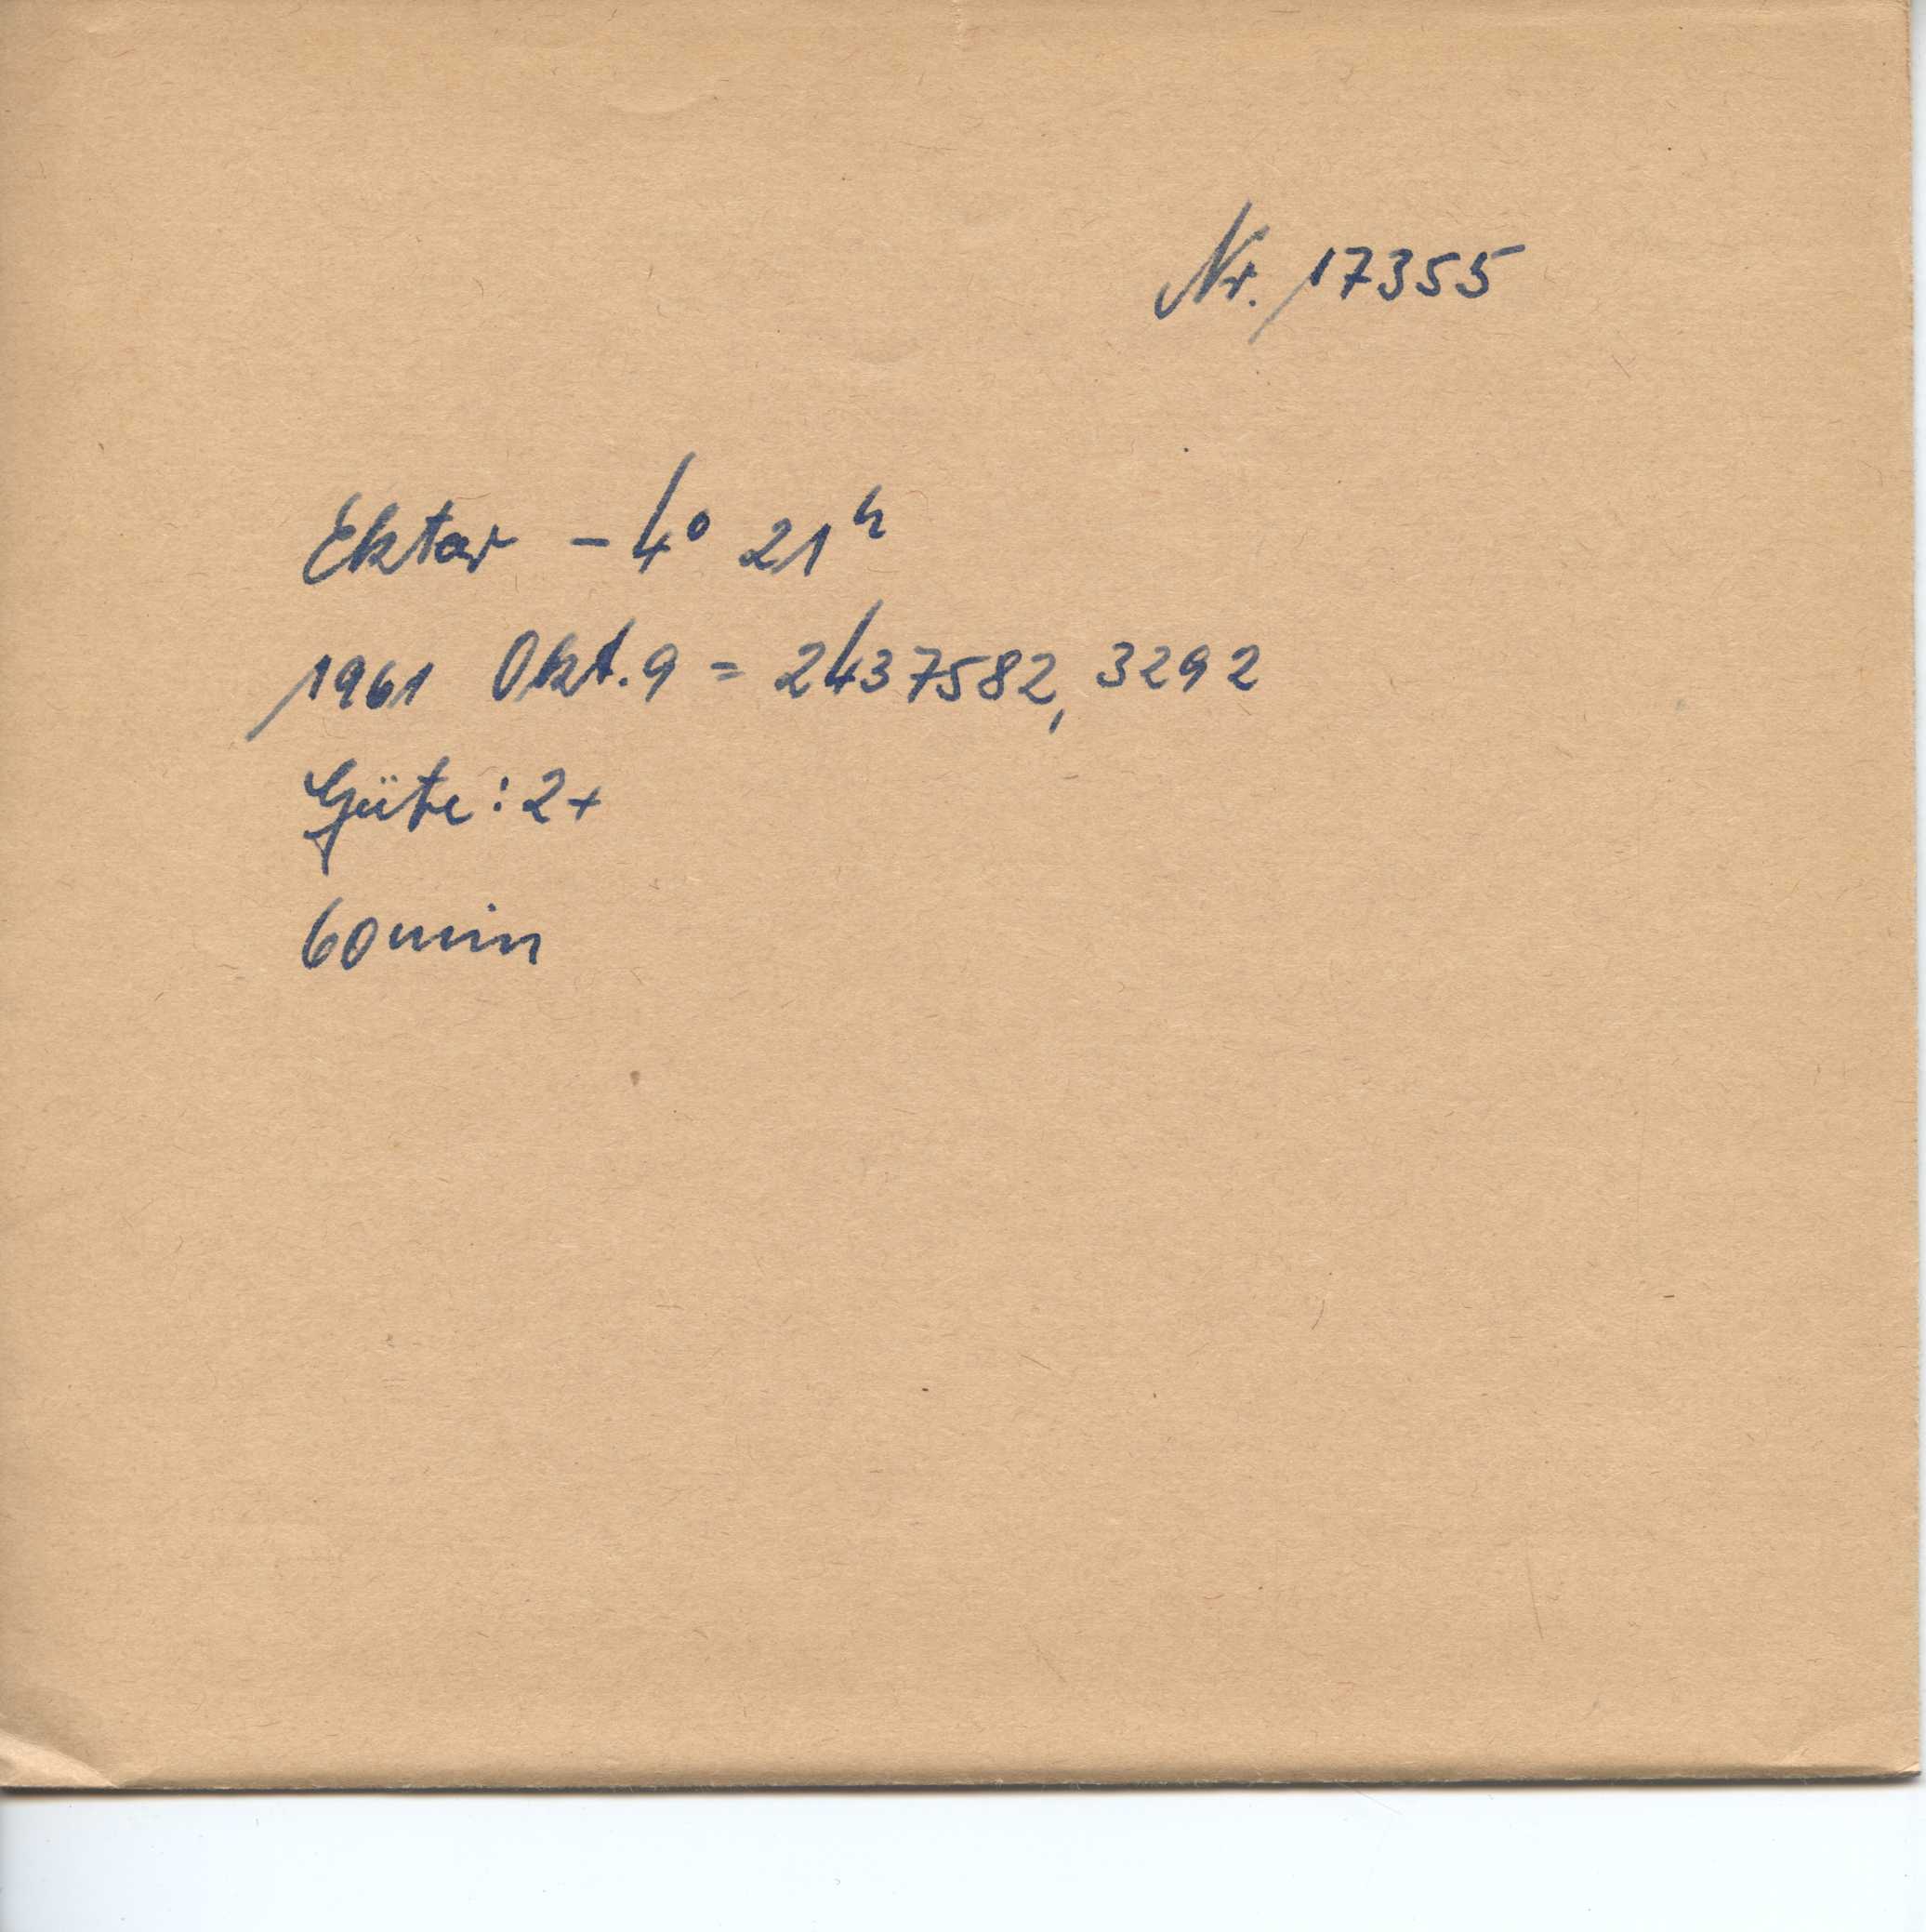 Nr. 17355
Ektar -4° 21ʰ
1961 Okt. 9 = 2437582,3292
Güte: 2+
60min